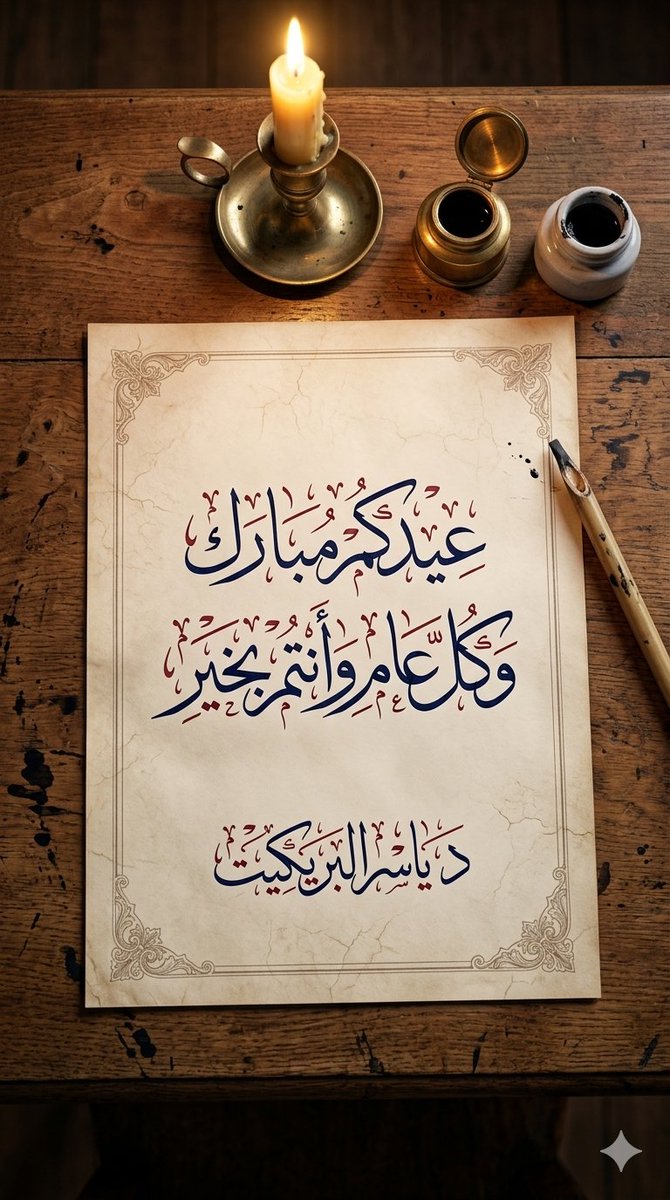 عِيدكُم مُبَارَك
وَكُلّ عَام وَأَنتُم بِخَيرِ
د ياسر البريكيت